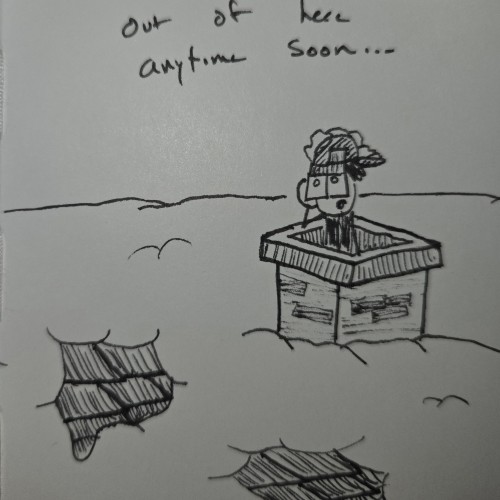 out of here
anytime soon...